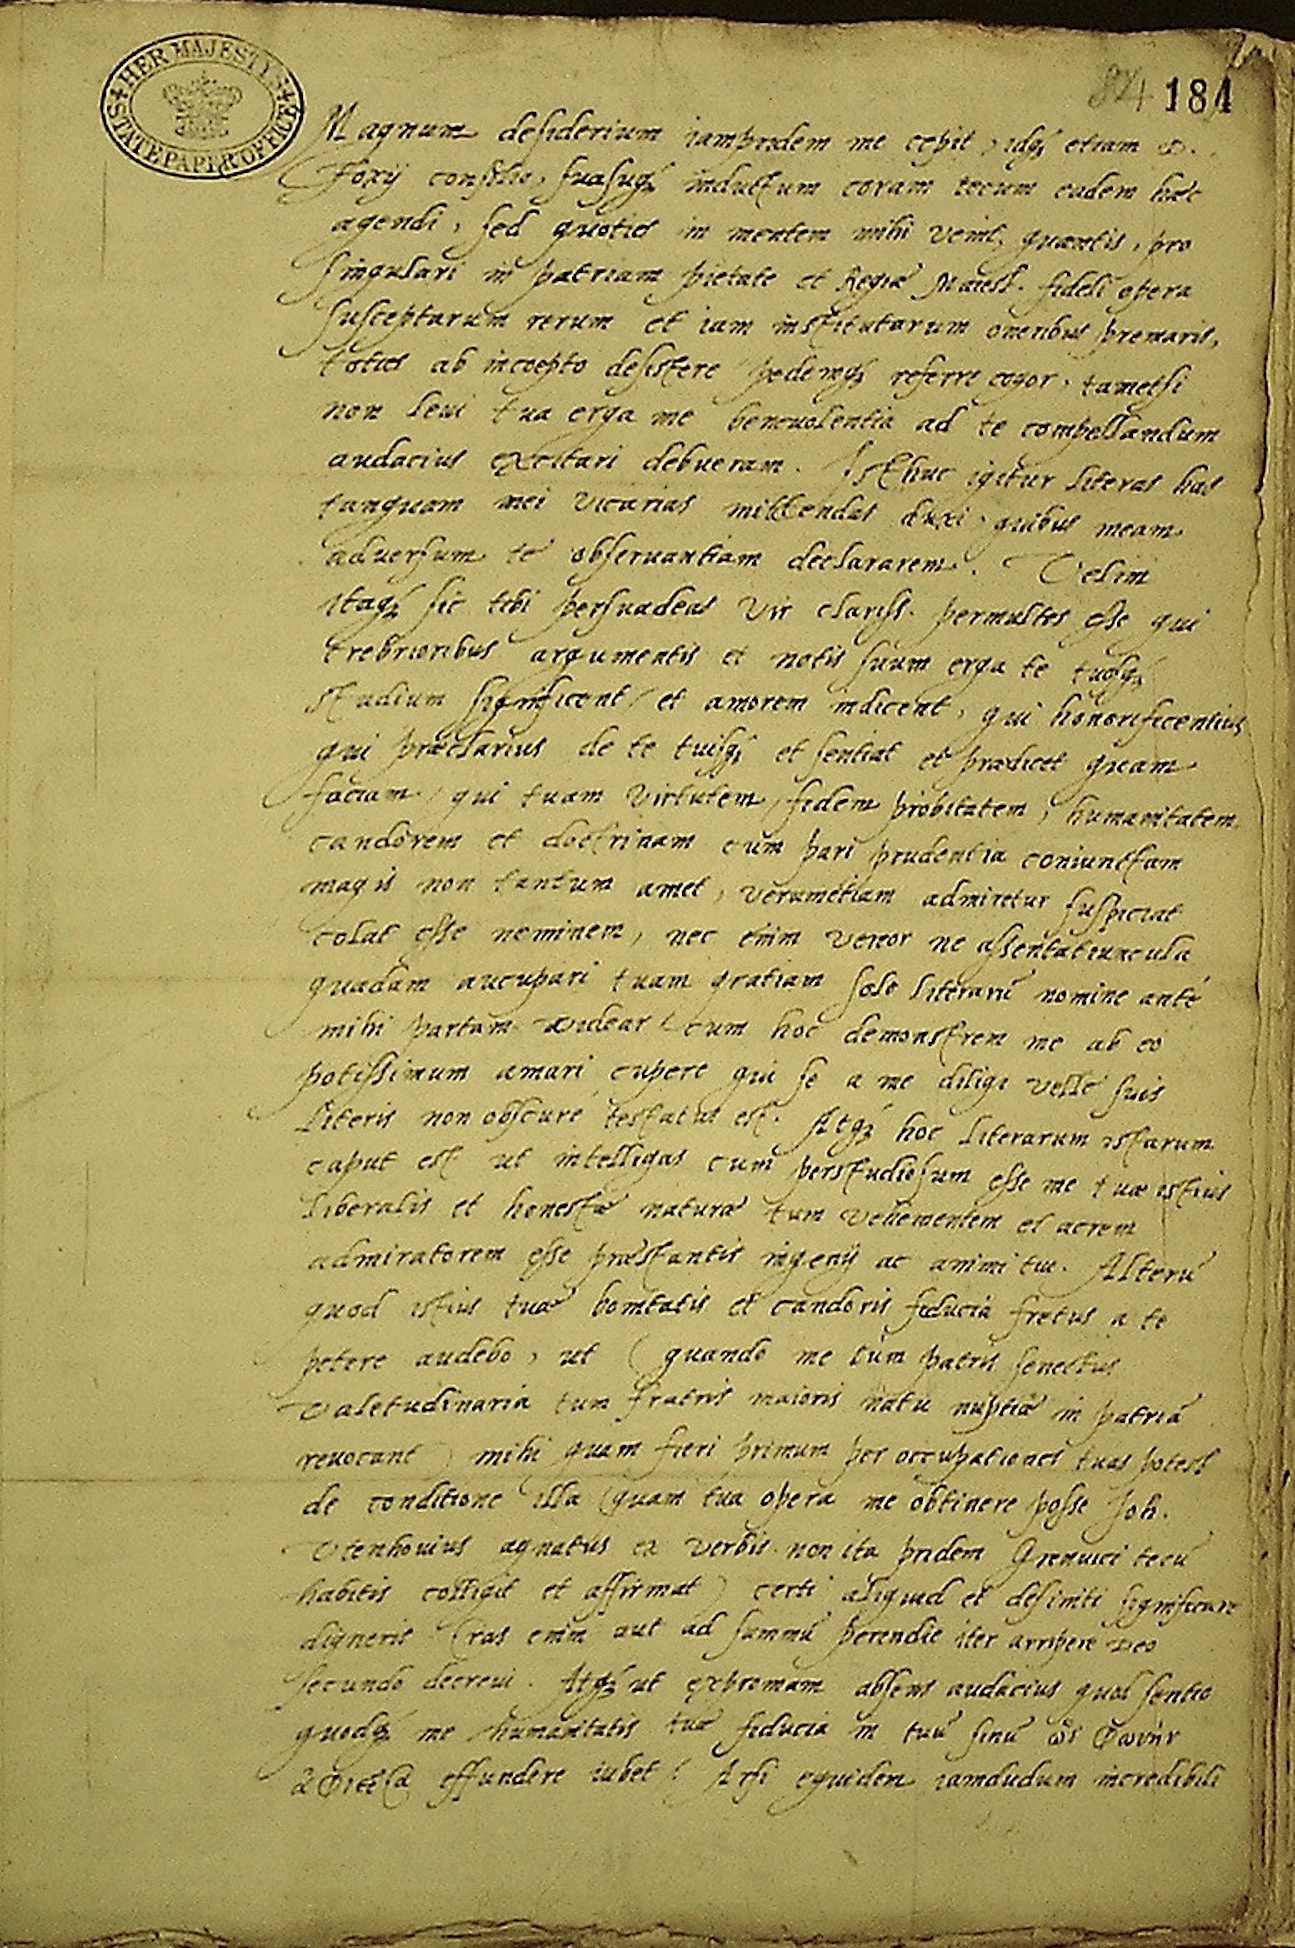 HER MAJESTY'S
STATE PAPER OFFICE
184
Magnum desiderium iampridem me cepit, idq; etiam D.
Foxij consilio, suasuq; inductum coram tecum eadem hæc
agendi, sed quoties in mentem mihi venit, quantis, pro
singulari in patriam pietate et Regiæ Maiest. fideli opera
susceptarum rerum et iam institutarum oneribus premaris,
toties ab incoepto desistere pedemq; referre cogor. tametsi
non leui tua erga me beneuolentia ad te compellandum
audacius excitari debueram. Isthuc igitur literas has
tanquam mei vicarias mittendas duxi quibus meam
aduersum te obseruantiam declararem. Velim
itaq; sic tibi persuadeas Vir clariss. permultos esse qui
crebrioribus argumentis et notis suum erga te tuosq;
studium significent / et amorem indicent, qui honorificentius
qui præclarius de te tuisq; et sentiat et prædicet quam
faciam / qui tuam virtutem, fidem probitatem, humanitatem
candorem et doctrinam cum pari prudentia coniunctam
magis non tantum amet, verumetiam admiretur suspiciat
colat esse neminem, nec enim vereor ne assentatiuncula
quadam aucupari tuam gratiam solo literarū nomine ante
mihi partam videar / cum hoc demonstrem me ab eo
potissimum amari cupere qui se a me diligi velle suis
Literis non obscuré testatus est. Atq; hoc literarum istarum
caput est ut intelligas cum perstudiosum esse me tuæ istius
liberalis et honestæ naturæ tum vehementem et acrem
admiratorem esse præstantis ingenij ac animi tui. Alterū
quod istius tuæ bonitatis et candoris fiducia fretus a te
petere audebo, ut (quando me tùm patris senectus
valetudinaria tum fratris maioris natu nuptiæ in patriā
reuocant) mihi quam fieri primum per occupationes tuas potest
de conditione illa (quam tua opera me obtinere posse Joh.
Vtenhouius agnatus ex verbis non ita pridem Grenuici tecū
habitis colligit et affirmat) certi aliquid et definiti significare
digneris Cras enim aut ad summū perendie iter arripere Deo
secundo decreui. Atq; ut expromam absens audacius quod sentio
quodq; me humanitatis tuæ fiducia in tuū sinū
effundere iubet / Arsi equidem iamdudum incredibili